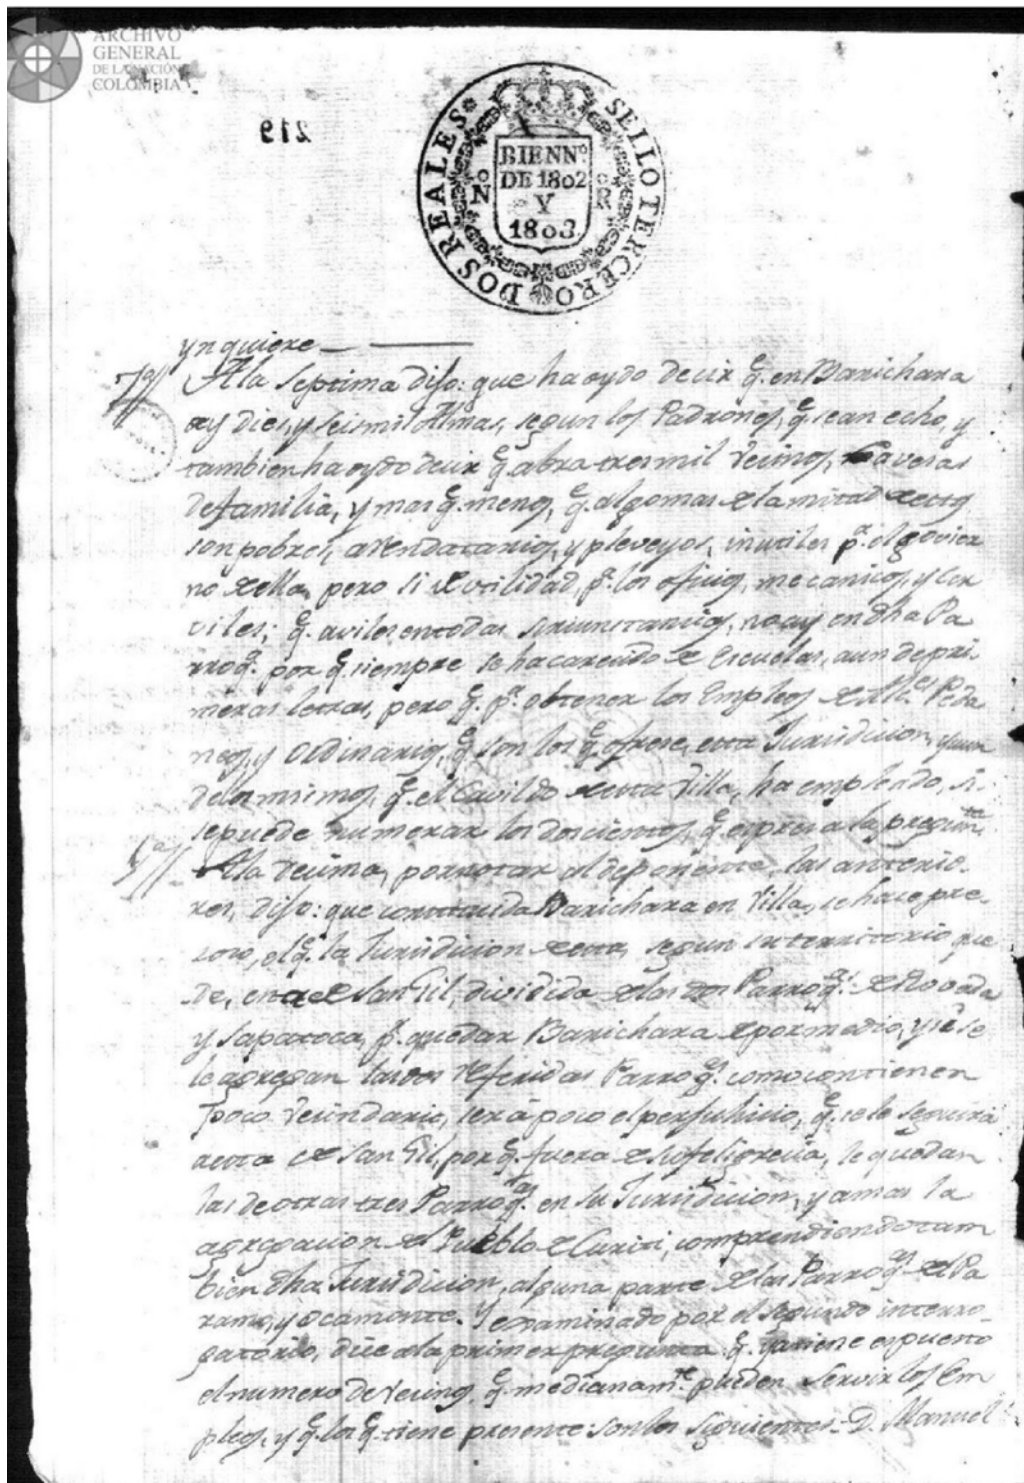 ARCHIVO
GENERAL
DE LA NACIÓN
COLOMBIA
219
SELLO TERCERO DOS REALES
BIENNº.
DE 1802
Y
1803.
Nº Rº
ynquiere
7ª// A la septima dijo: que ha oydo decir q.e en Barichara
ay dies, y seis mil Almas, segun los Padrones, q.e se an echo, y
tambien ha oydo decir q.e abra tres mil Vecinos, Caveras
de familia, y mas q.e menos, q.e algo mas de la mitad de estos
son pobres, arrendatarios, y pleveyos, inutiles p.a el govier
no de ella, pero si de utilidad, p.a los oficios, mecanicos, y ser
viles; q.e aviles en todas sircunstancias, no ay en dha Pa
rroq.a por q.e siempre se ha carecido de Escuelas, aun de pri-
meras letras, pero q.e p.a obtener los Empleos de Alc.es Peda
neos, y Ordinarios, q.e son los q.e ofrese, esta Jurisdicion, y aun
de los mismos, q.e el Cavildo de esta Villa, ha empleado, si
se puede numerar los doscientos, q.e espresa la pregunta
A la decima, por no tocar al deponente, las anterio-
res, dijo: que constituida Barichara en Villa, se hace pre-
siso, el q.e la Jurisdicion de esta, segun su territorio que
de, en a de San Gil, dividida de las dos Parroq.s de Robada
y Sapatoca, p.r quedar Barichara de por medio, y si se
le agregan las dos referidas Parroq.s como contienen
poco Vecindario, será poco el perjuhicio, q.e se le seguirá
a esta de San Gil, por q.e fuera de su feligrecia, le quedan
las de otras tres Parroq.as en su Jurisdicion, y a mas la
agregacion del Pueblo de Curiti, comprendiendo tam
bien dha Jurisdicion, alguna parte de las Parroq.as del Pa
ramo, y Ocamonte. Y examinado por el segundo interro-
gatorio, dice a la primer pregunta: q.e ya tiene espuesto
el numero de Vecinos, q.e medianam.te pueden servir los Em
pleos, y q.e los q.e tiene presente son los siguientes - D. Manuel